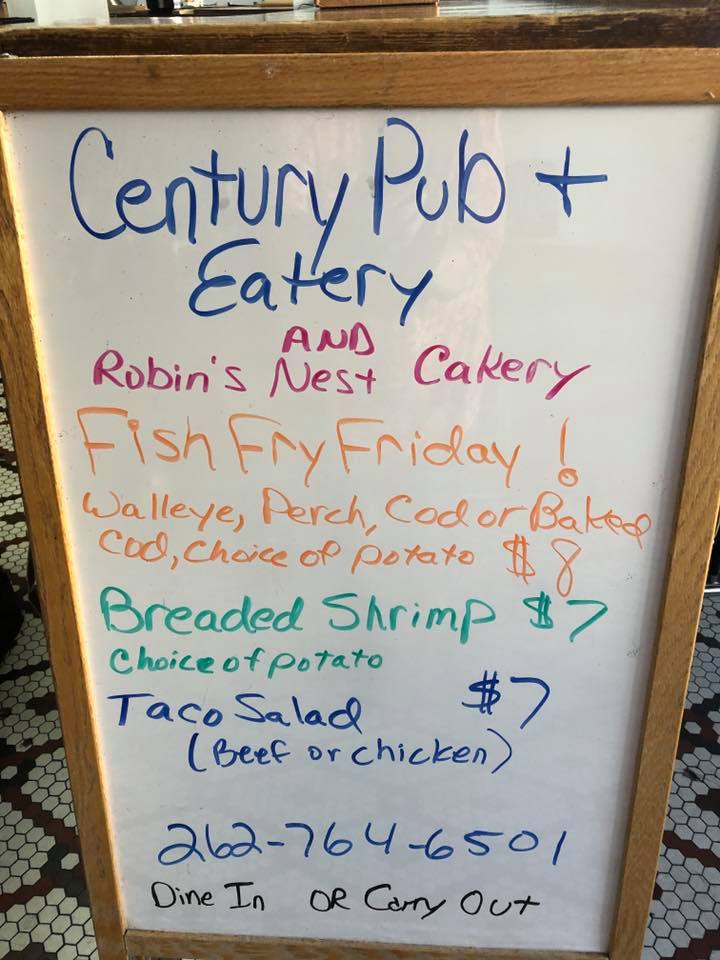 Century Pub +
Eatery
AND
Robin's Nest Cakery
Fish Fry Friday!
Walleye, Perch, Cod or Baked
Cod, Choice of potato $8
Breaded Shrimp $7
Choice of potato
Taco Salad $7
(Beef or chicken)
262-764-6501
Dine In OR Carry Out